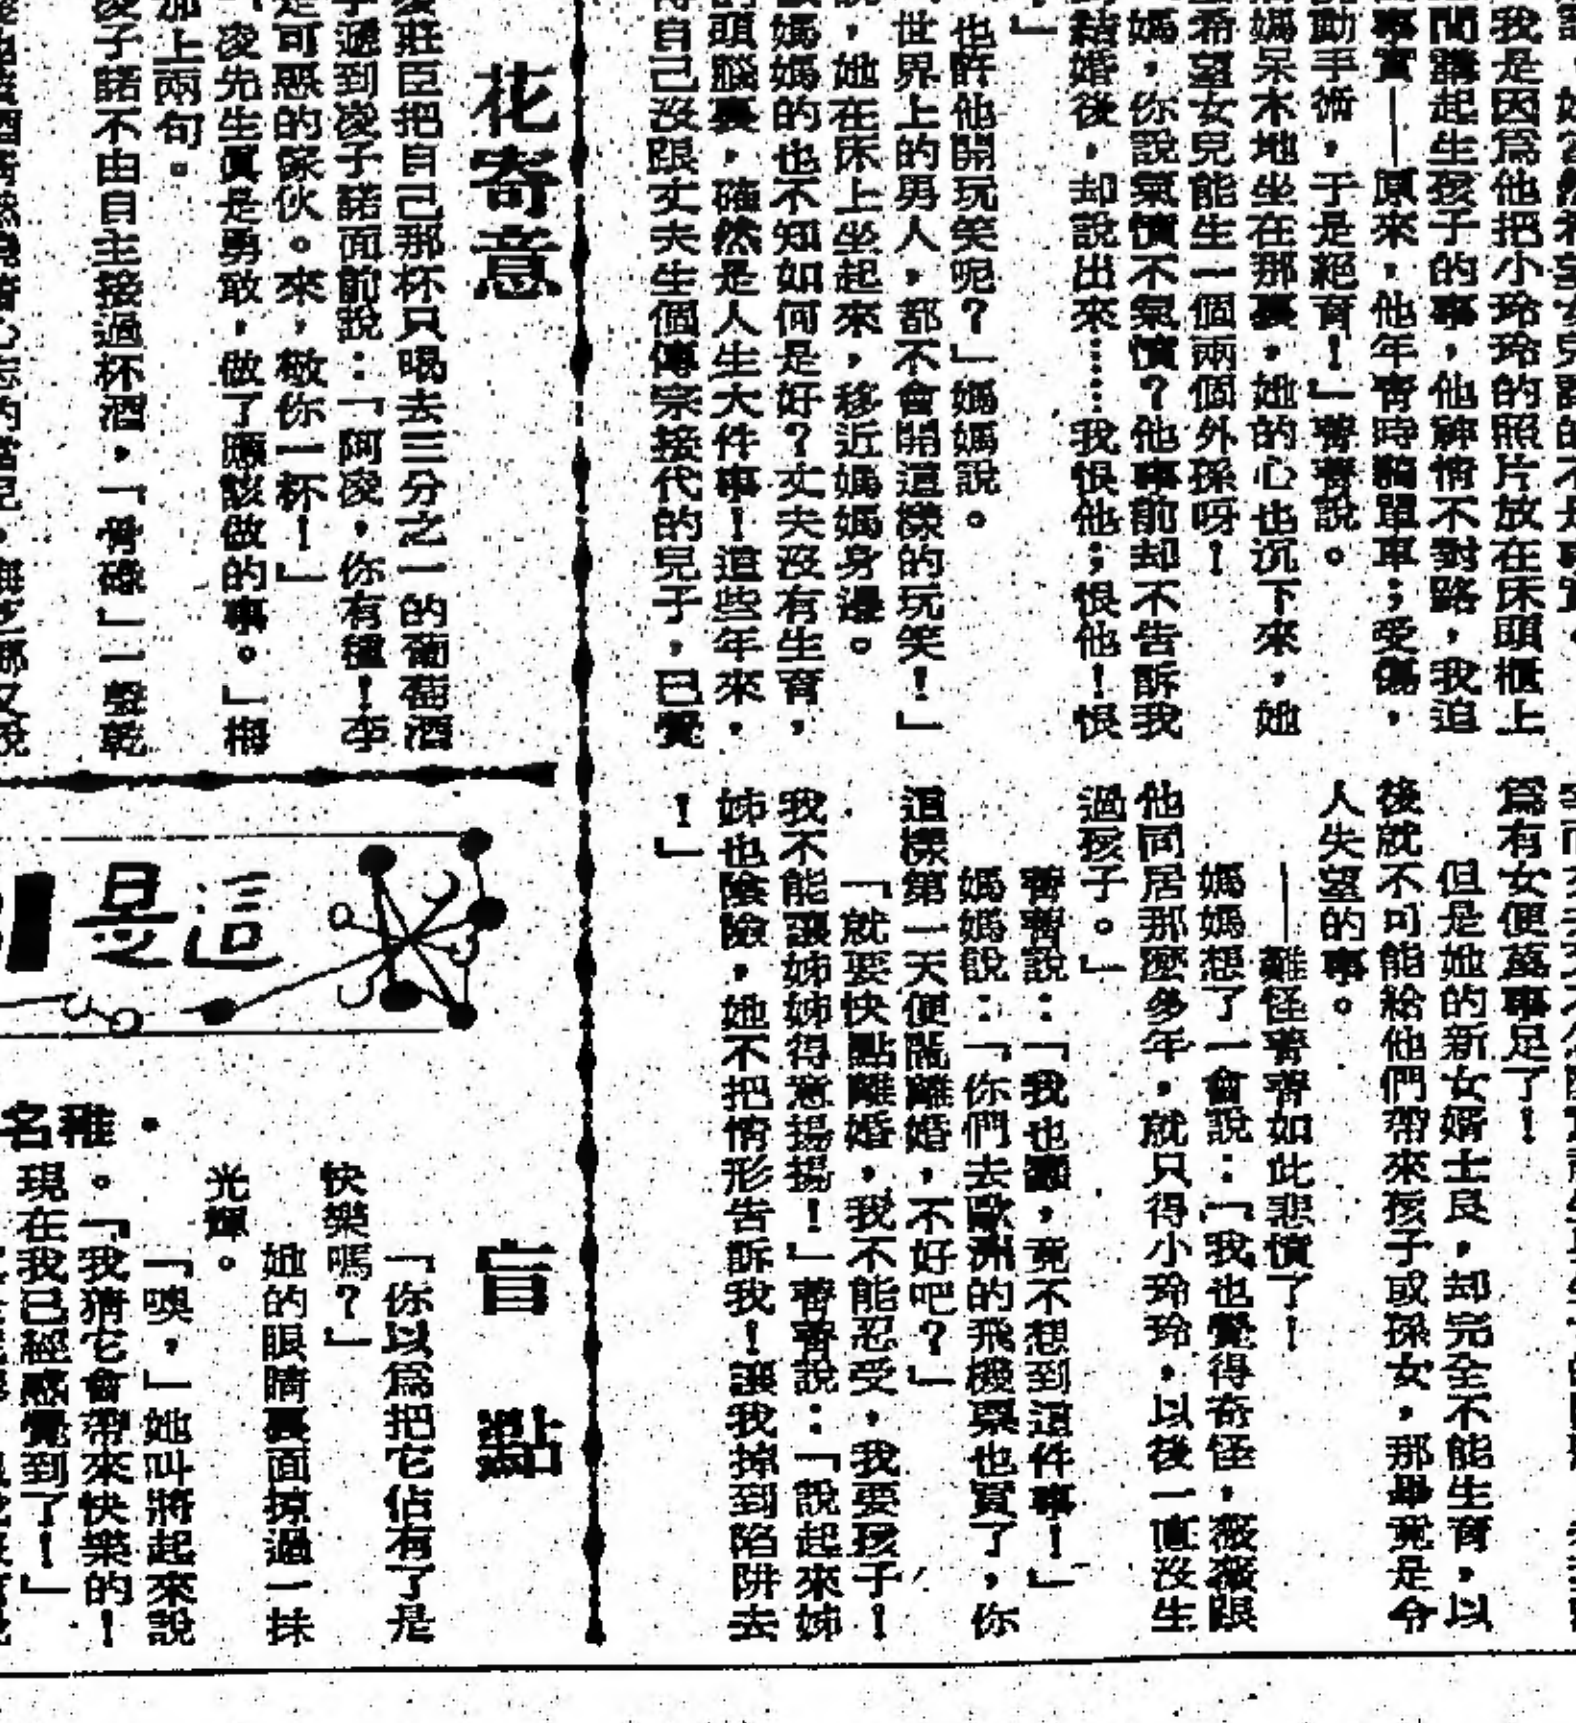 我是因爲他把小玲玲的照片放在床頭櫃上
間講起生孩子的事，他神情不對路，我迫
事實——原來，他年青時騎單車；受傷，
動手術，于是絕育！」菁菁說。
媽呆木地坐在那裏，她的心也沉下來，她
希望女兒能生一個兩個外孫呀！
媽，你說氣憤不氣憤？他事前却不告訴我
結婚後，却說出來……我恨他；恨他！恨
！」
也許他開玩笑呢？」媽媽說。
世界上的男人，都不會開這樣的玩笑！」
，她在床上坐起來，移近媽媽身邊。
媽媽的也不知如何是好？丈夫沒有生育，
頭腦裏，確然是人生大件事！這些年來，
自己沒跟丈夫生個傳宗接代的兒子，已覺
爲有女便萬事足了！
但是她的新女婿士良，却完全不能生育，以
後就不可能給他們帶來孩子或孫女，那畢竟是令
人失望的事。
——難怪菁菁如此悲憤了！
媽媽想了一會說：「我也覺得奇怪，薇薇跟
他同居那麼多年，就只得小玲玲，以後一直沒生
過孩子。」
菁菁說：「我也蠢，竟不想到這件事！」
媽媽說：「你們去歐洲的飛機票也買了，你
這樣第一天便鬧離婚，不好吧？」
「就要快點離婚，我不能忍受，我要孩子！
我不能讓姊姊得意揚揚！」菁菁說：「說起來姊
姊也陰險，她不把情形告訴我！讓我掉到陷阱去
！」
花寄意
莊臣把自己那杯只喝去三分之一的葡萄酒
遞到凌子諾面前說：「阿凌，你有種！李
是可惡的傢伙。來，敬你一杯！」
「凌先生眞是勇敢，做了應該做的事。」梅
加上兩句。
凌子諾不由自主接過杯酒，「骨碌」一聲乾
這是
盲點
「你以爲把它佔有了是
快樂嗎？」
她的眼睛裏面掠過一抹
光輝。
「噢，」她叫將起來說
。「我猜它會帶來快樂的！
現在我已經感覺到了！」
・雅名